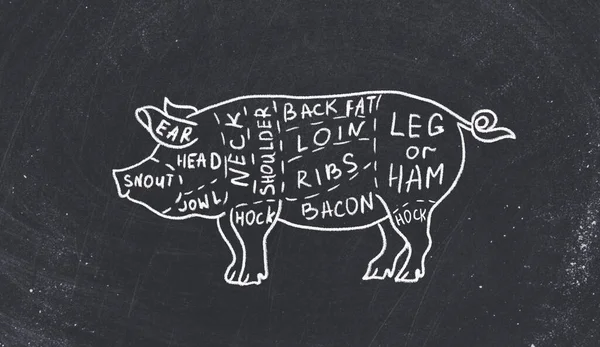 EAR
HEAD
SNOUT
JOWL
NECK
SHOULDER
HOCK
BACK FAT
LOIN
RIBS
BACON
LEG
or
HAM
HOCK